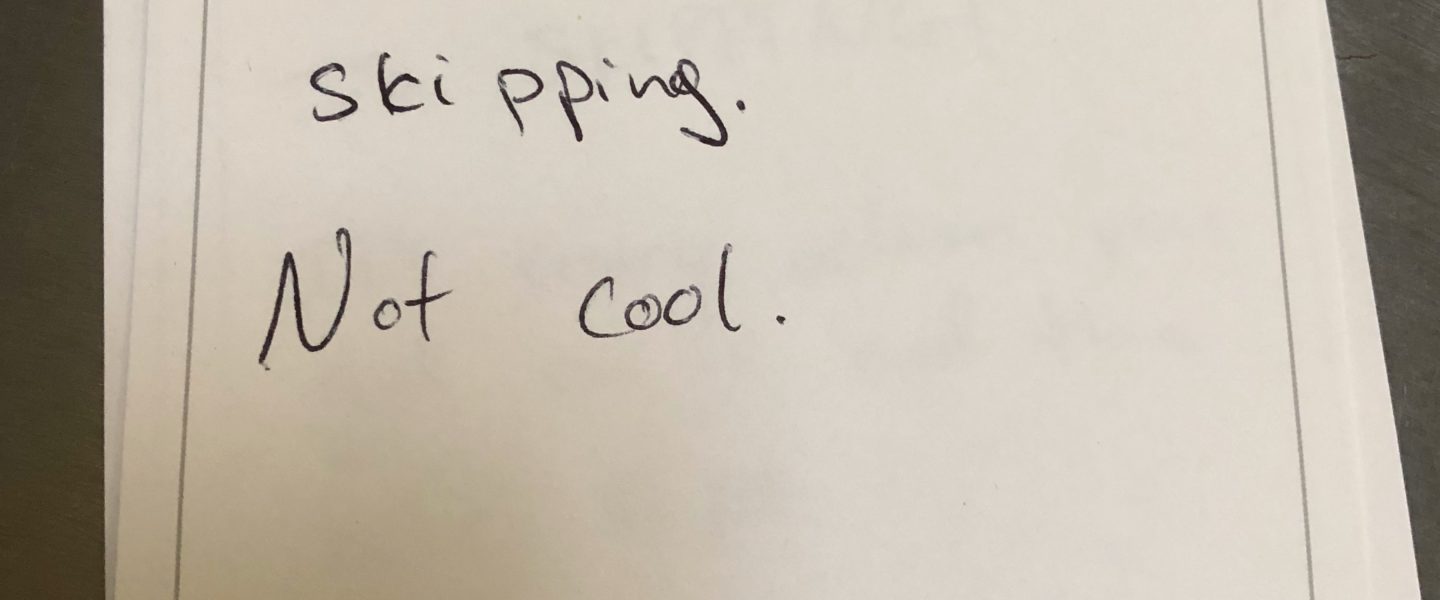 skipping.
Not cool.